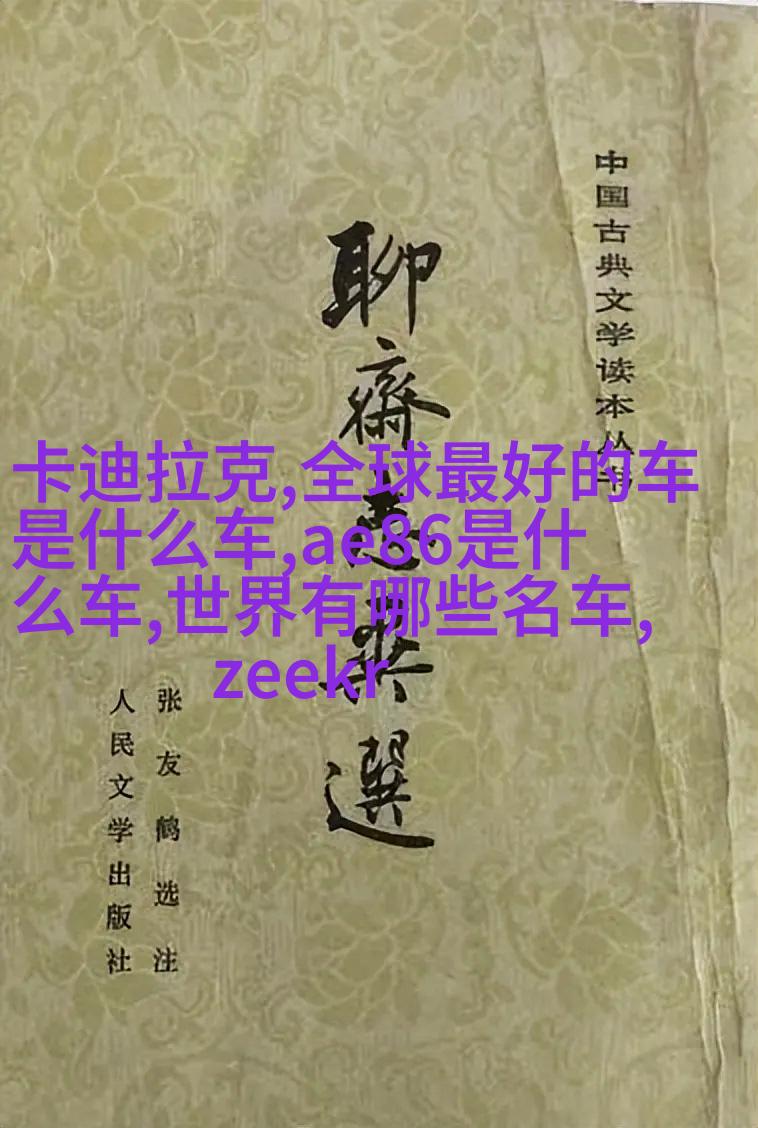 中国古典文学读本丛书
聊齋志異選
卡迪拉克,全球最好的车
是什么车,ae86是什
么车,世界有哪些名车,
zeekr
张友鹤选注
人民文学出版社